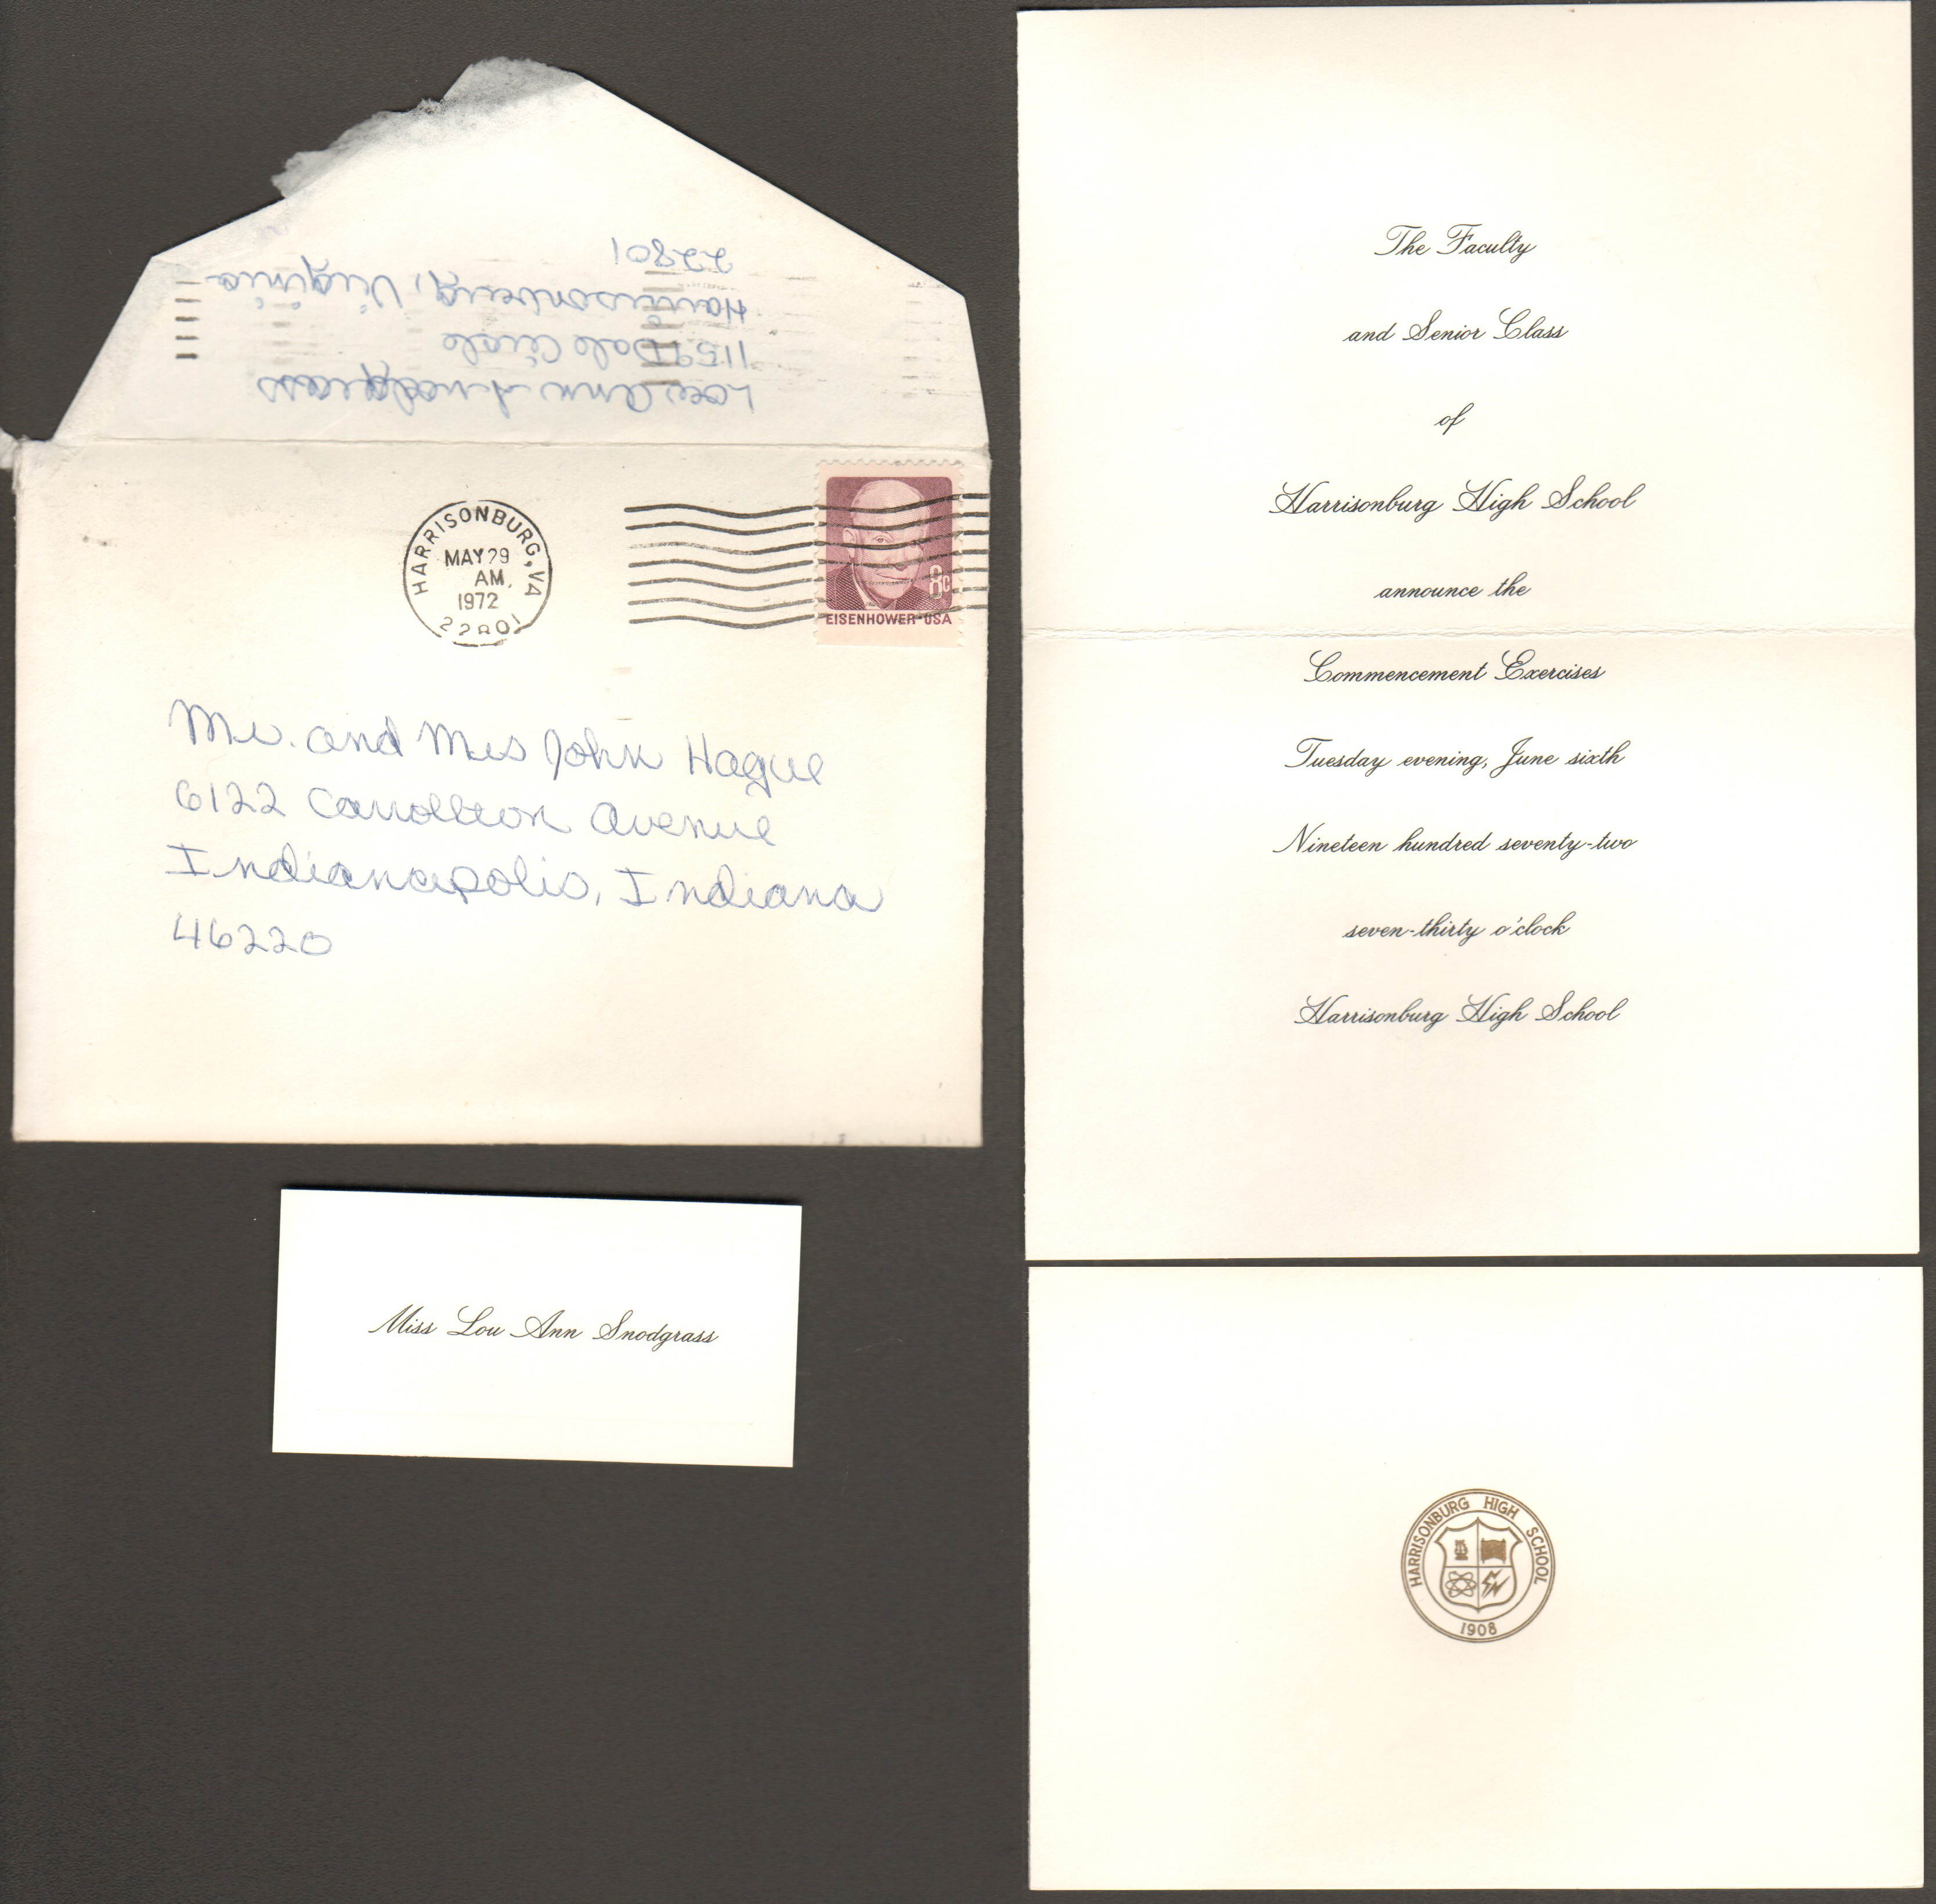 Lou Ann Snodgrass
1159 Dale Circle
Harrisonburg, Virginia
22801
HARRISONBURG, VA
MAY 29
AM
1972
22801
8c
EISENHOWER·USA
Mr. and Mrs John Hague
6122 Carrollton Avenue
Indianapolis, Indiana
46220
Miss Lou Ann Snodgrass
The Faculty
and Senior Class
of
Harrisonburg High School
announce the
Commencement Exercises
Tuesday evening, June sixth
Nineteen hundred seventy-two
seven-thirty o'clock
Harrisonburg High School
HARRISONBURG HIGH SCHOOL
1908